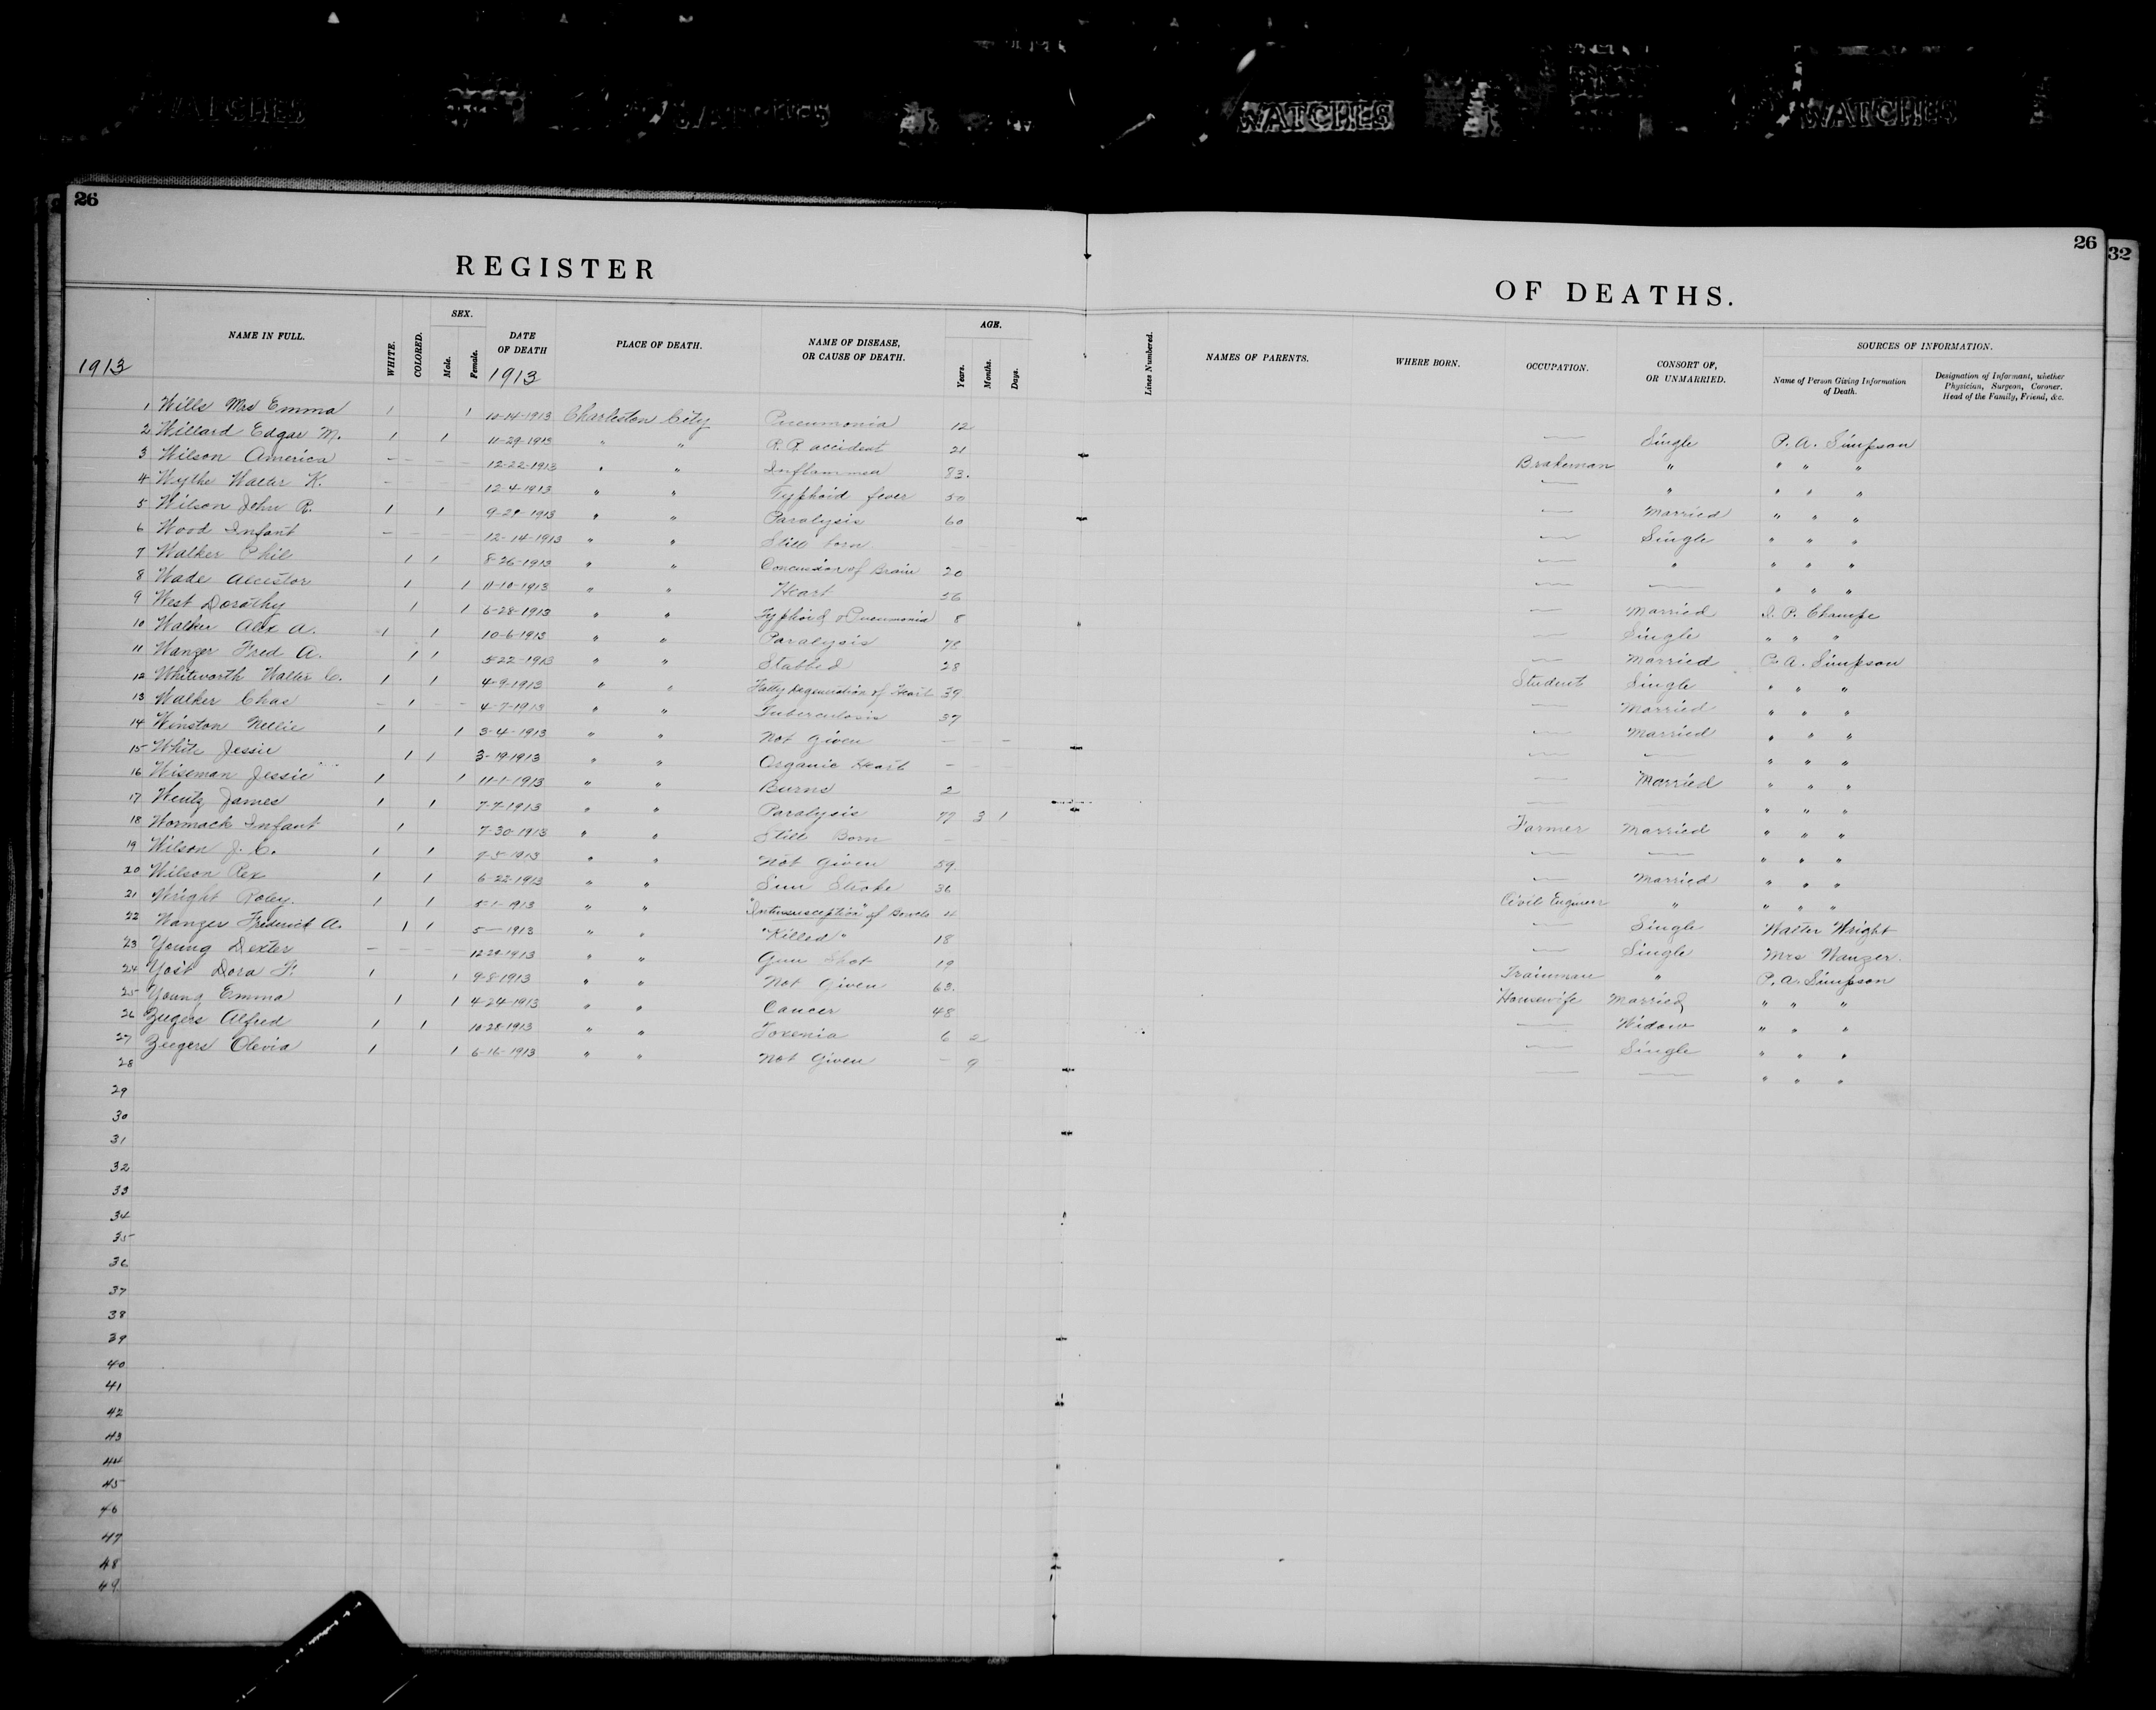 WATCHES WATCHES WATCHES WATCHES
26 26 32
REGISTER OF DEATHS.
1913
NAME IN FULL. WHITE. COLORED. SEX. Male. Female. DATE OF DEATH 1913 PLACE OF DEATH. NAME OF DISEASE, OR CAUSE OF DEATH. AGE. Years. Months. Days. Lines Numbered. NAMES OF PARENTS. WHERE BORN. OCCUPATION. CONSORT OF, OR UNMARRIED. SOURCES OF INFORMATION. Name of Person Giving Information of Death. Designation of Informant, whether Physician, Surgeon, Coroner. Head of the Family, Friend, &c.
1 Wills Mrs Emma 1 1 10-14-1913 Charleston City Pneumonia 12 — Single P. A. Simpson
2 Willard Edgar M. 1 1 11-29-1913 " " R. R. accident 21 Brakeman " " " "
3 Wilson America - - - - 12-22-1913 " " 83. — " " " "
4 Wythe Walter K. - - - - 12-4-1913 " " Typhoid fever 50 — Married " " "
5 Wilson John R. 1 1 1913 " " Paralysis 60 — Single " " "
6 Wood Infant - - - - 12-14-1913 " " Still born — " " " "
7 Walker Phil 1 1 8-26-1913 " " Concussion of Brain 20 — — " " "
8 Wade 1 1 11-10-1913 " " Heart 36 — Married I. P. Champe
9 West Dorathy 1 1 6-28-1913 " " Typhoid & Pneumonia 8 — Single " " "
10 Walker Alex A. 1 1 10-6-1913 " " Paralysis 78 — Married P. A. Simpson
11 Wanzer Fred A. 1 1 5-22-1913 " " Stabbed 28 Student Single " " "
12 Whitworth Walter C. 1 1 4-9-1913 " " Fatty Degeneration of Heart 39 — Married " " "
13 Walker Chas - 1 - - 4-7-1913 " " Tuberculosis 37 — Married " " "
14 Winston Nellie 1 1 3-4-1913 " " Not Given — — — — " " "
15 White Jessie 1 1 3-19-1913 " " Organic Heart — — — — Married " " "
16 Wiseman Jessie 1 1 11-1-1913 " " Burns 2 — " " "
17 Wentz James 1 1 7-7-1913 " " Paralysis 77 3 1 Farmer Married " " "
18 Wormack Infant 1 7-30-1913 " " Still Born — — — " " "
19 Wilson J. C. 1 1 7-5-1913 " " Not Given 59. — Married " " "
20 Wilson Rex 1 1 6-22-1913 " " Sun Stroke 36 Civil Engineer " " " "
21 Wright Roley. 1 1 5-1-1913 " " "Intussusception" of Bowels 4 — Single Walter Wright
22 Wanzer Frederick A. 1 1 5— 1913 " " "Killed" 18 — Single Mrs Wanzer.
23 Young Dexter - - - - 12-29-1913 " " Gun Shot 19 Trainman " P. A. Simpson
24 Yost Dora F. 1 1 9-8-1913 " " Not Given 63. Housewife Married " " "
25 Young Emma 1 1 4-24-1913 " " Cancer 48 — Widow " " "
26 Zeegers Alfred 1 1 10-28-1913 " " Toxenia 6 2 — Single " " "
27 Zeegers Olevia 1 1 6-16-1913 " " Not Given — 9 — — " " "
28
29
30
31
32
33
34
35
36
37
38
39
40
41
42
43
44
45
46
47
48
49.